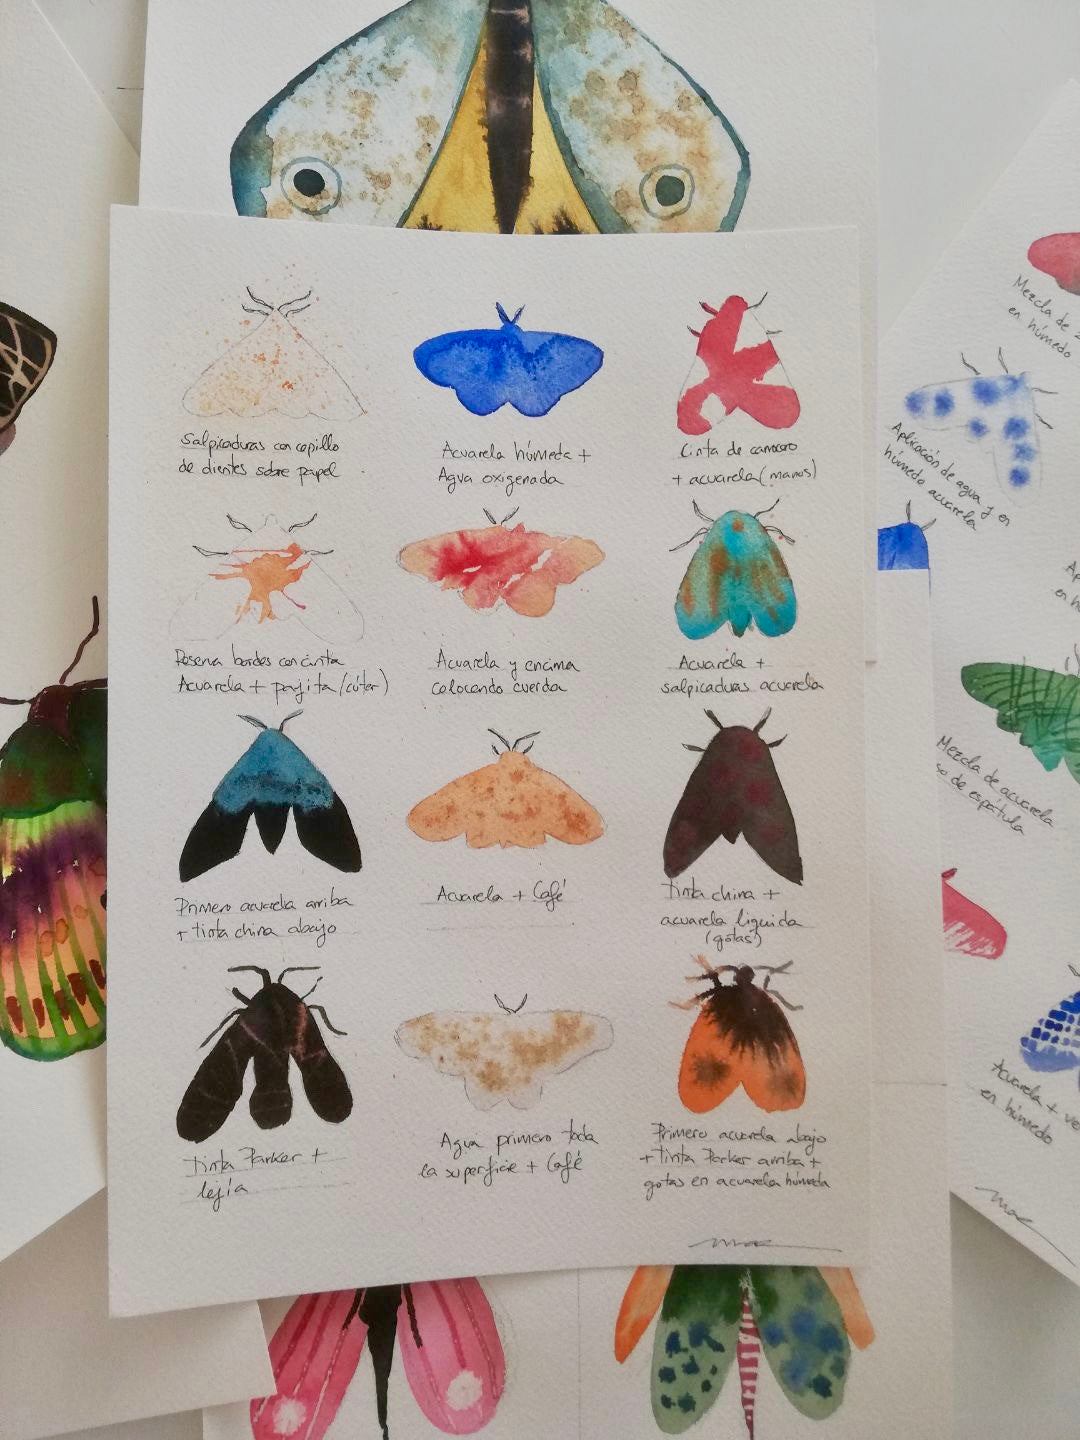 Salpicaduras con cepillo
de dientes sobre papel
Acuarela húmeda +
Agua oxigenada
Cinta de carrocero
+ acuarela (manos)
Reserva bordes con cinta
Acuarela + pajita (cúter)
Acuarela y encima
colocando cuerda
Acuarela +
salpicaduras acuarela
Primero acuarela arriba
+ tinta china abajo
Acuarela + Café
Tinta china +
acuarela líquida
(gotas)
Tinta Parker +
lejía
Agua primero toda
la superficie + Café
Primero acuarela abajo
+ tinta Parker arriba +
gotas en acuarela húmeda
Mezcla de
en húmedo
Aplicación de agua y en
húmedo acuarela
Mezcla de acuarela
so de espátula
Acuarela + ve
en húmedo